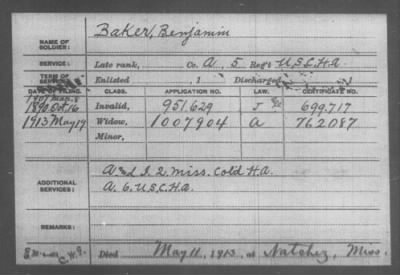 NAME OF SOLDIER: Baker, Benjamin
SERVICE: Late rank, Co. A, 5 Reg't U.S.C.H.A.
TERM OF SERVICE: Enlisted , 1 Discharged , 1
DATE OF FILING. CLASS. APPLICATION NO. LAW. CERTIFICATE NO.
1907 Mar. 8
1890 Oct 16 Invalid, 951.629 J 699.717
1913 May 19 Widow, 1007904 A 762087
Minor,
ADDITIONAL SERVICES: A and I. 2. Miss. Cold H.A.
A. 6. U.S.C.H.A.
REMARKS:
C.W.9. Died May 11, 1913, at Natchez, Miss.